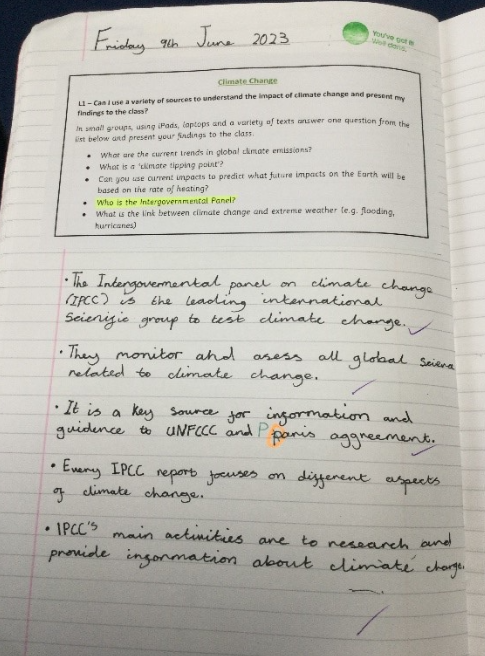 Friday 9th June 2023
You've got it
Well done.
Climate Change
L1 – Can I use a variety of sources to understand the impact of climate change and present my
findings to the class?
In small groups, using iPads, laptops and a variety of texts answer one question from the
list below and present your findings to the class.
• What are the current trends in global climate emissions?
• What is a 'climate tipping point'?
• Can you use current impacts to predict what future impacts on the Earth will be
based on the rate of heating?
• Who is the Intergovernmental Panel?
• What is the link between climate change and extreme weather (e.g. flooding,
hurricanes)
• The Intergovermental panel on climate change
(IPCC) is the leading international
Scienific group to test climate change.
• They monitor and asess all global Sciena
related to climate change.
• It is a key source for information and
guidence to UNFCCC and P paris aggreement.
• Every IPCC report focuses on different aspects
of climate change.
• IPCC's main activities are to research and
provide information about climate change.